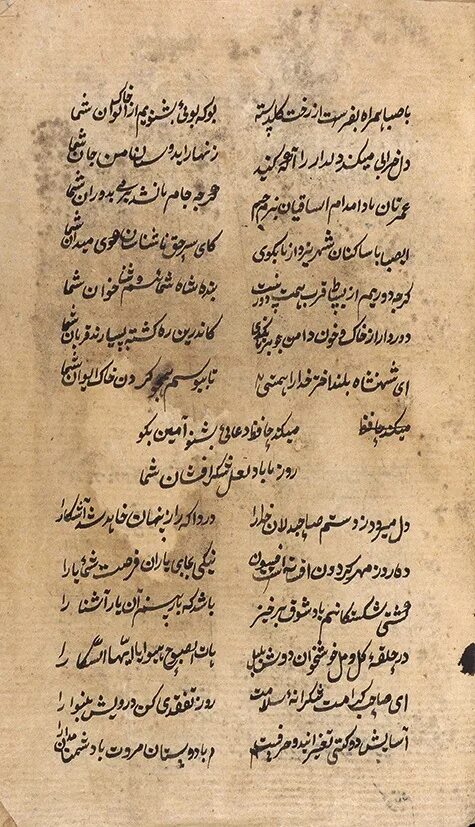 باصبا همراه بفرست از رخت گلدسته بو که بوئی بشنویم از خاک بوستان شما
دل خرابی میکند دلدار را آگه کنید زنهار ایدوستان جان من جان شما
عمرتان باد ا مدام ای ساقیان بزم جم گرچه جام ما نشد پر می بدوران شما
ایصبا با ساکنان شهر یزد از ما بگوی کای سر حق ناشناسان گوی میدان شما
گرچه دوریم از بساط قرب همت دور نیست بنده شاه شمائیم و ثنا خوان شما
دور دار از خاک و خون دامن چو بر ما بگذری کاندرین ره کشته بسیارند قربان شما
ای شهنشاه بلند اختر خدا را همتی تا ببوسم همچو گردون خاک ایوان شما
میکند حافظ
میکند حافظ دعائی بشنو آمین بگو
روزی ما باد لعل شکر افشان شما
دل میرود ز دستم صاحبدلان خدا را دردا که راز پنهان خواهد شد آشکارا
ده روزه مهر گردون افسانه است افسون نیکی بجای یاران فرصت شمار یارا
کشتی شکستگانیم باد شرطه برخیز باشد که باز بینیم آن یار آشنا را
در حلقه گل و مل خوش خواند دوش بلبل هات الصبوح هبوا یا ایها السکارا
ای صاحب کرامت شکرانه سلامت روزی تفقدی کن درویش بینوا را
آسایش دو گیتی تفسیر این دو حرفست با دوستان مروت با دشمنان مدارا